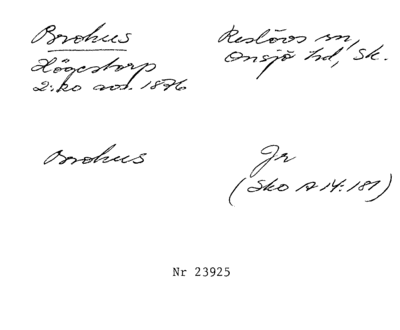 Brohus
Reslövs sn,
Onsjö hd, Sk.
Högestorp
2:20 avs. 1876
Brohus
Jr
(Sko A 14:181)
Nr 23925